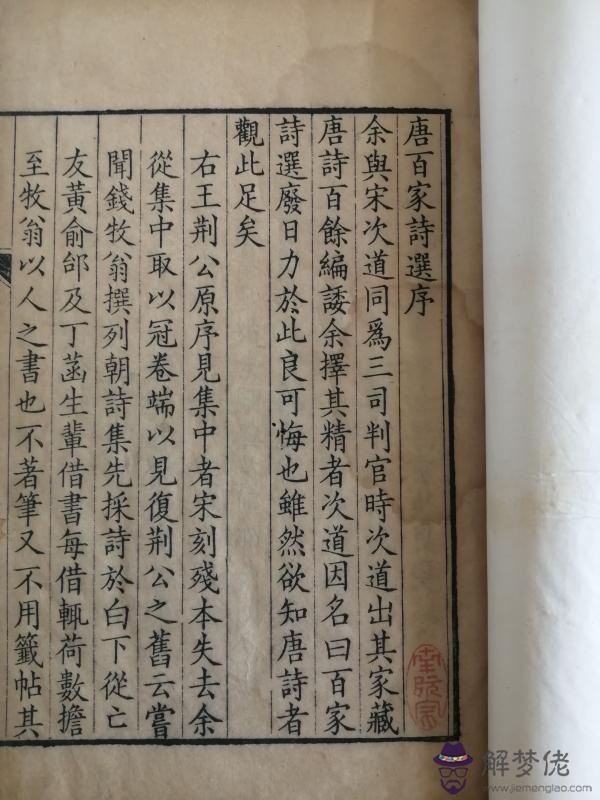 唐百家詩選序
余與宋次道同爲三司判官時次道出其家藏
唐詩百餘編諉余擇其精者次道因名曰百家
詩選廢日力於此良可悔也雖然欲知唐詩者
觀此足矣
右王荆公原序見集中者宋刻殘本失去余
從集中取以冠卷端以見復荆公之舊云嘗
聞錢牧翁撰列朝詩集先採詩於白下從亡
友黃俞邰及丁菡生輩借書每借輒荷數擔
至牧翁以人之書也不著筆又不用籤帖其
解梦佬
www.jiemenglao.com